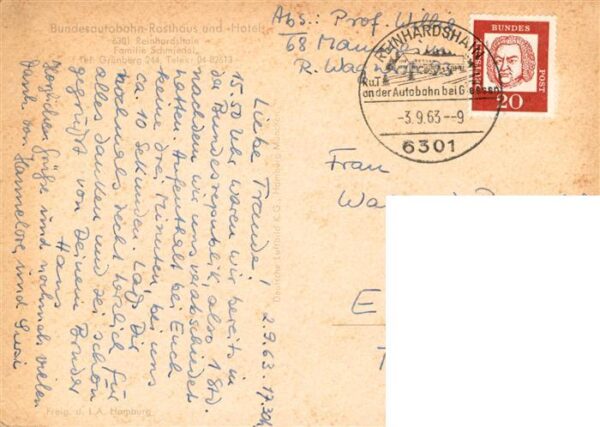 Bundesautobahn-Rasthaus und -Hotel
6301 Reinhardshain
Familie Schmiedel
Tel. Grünberg 244, Telex: 04-82813
Abs.: Prof. Willi
68 Man
R. Wag
REINHARDSHAIN
RuT
an der Autobahn bei Giessen
-3.9.63--9
6301
DEUTSCHE BUNDESPOST
20
Frau
Wa
E
2.9.63. 17.30h
Liebe Traude!
15.50 Uhr waren wir bereits in
der Bundesrepublik, also 1 Std.
nachdem wir uns verabschiedet
hatten. Aufenthalt bei Euch
keine drei Minuten, bei uns
ca. 10 Sekunden. Laß Dir
nochmals recht herzlich für
alles danken und sei schön
gegrüßt von Deinem Bruder
Hans
Herzlichen Grüße und nochmals vielen
Dank von Hannelore und Susi
Deutsche Luftbild K.G.
Freig. d. L.A. Hamburg